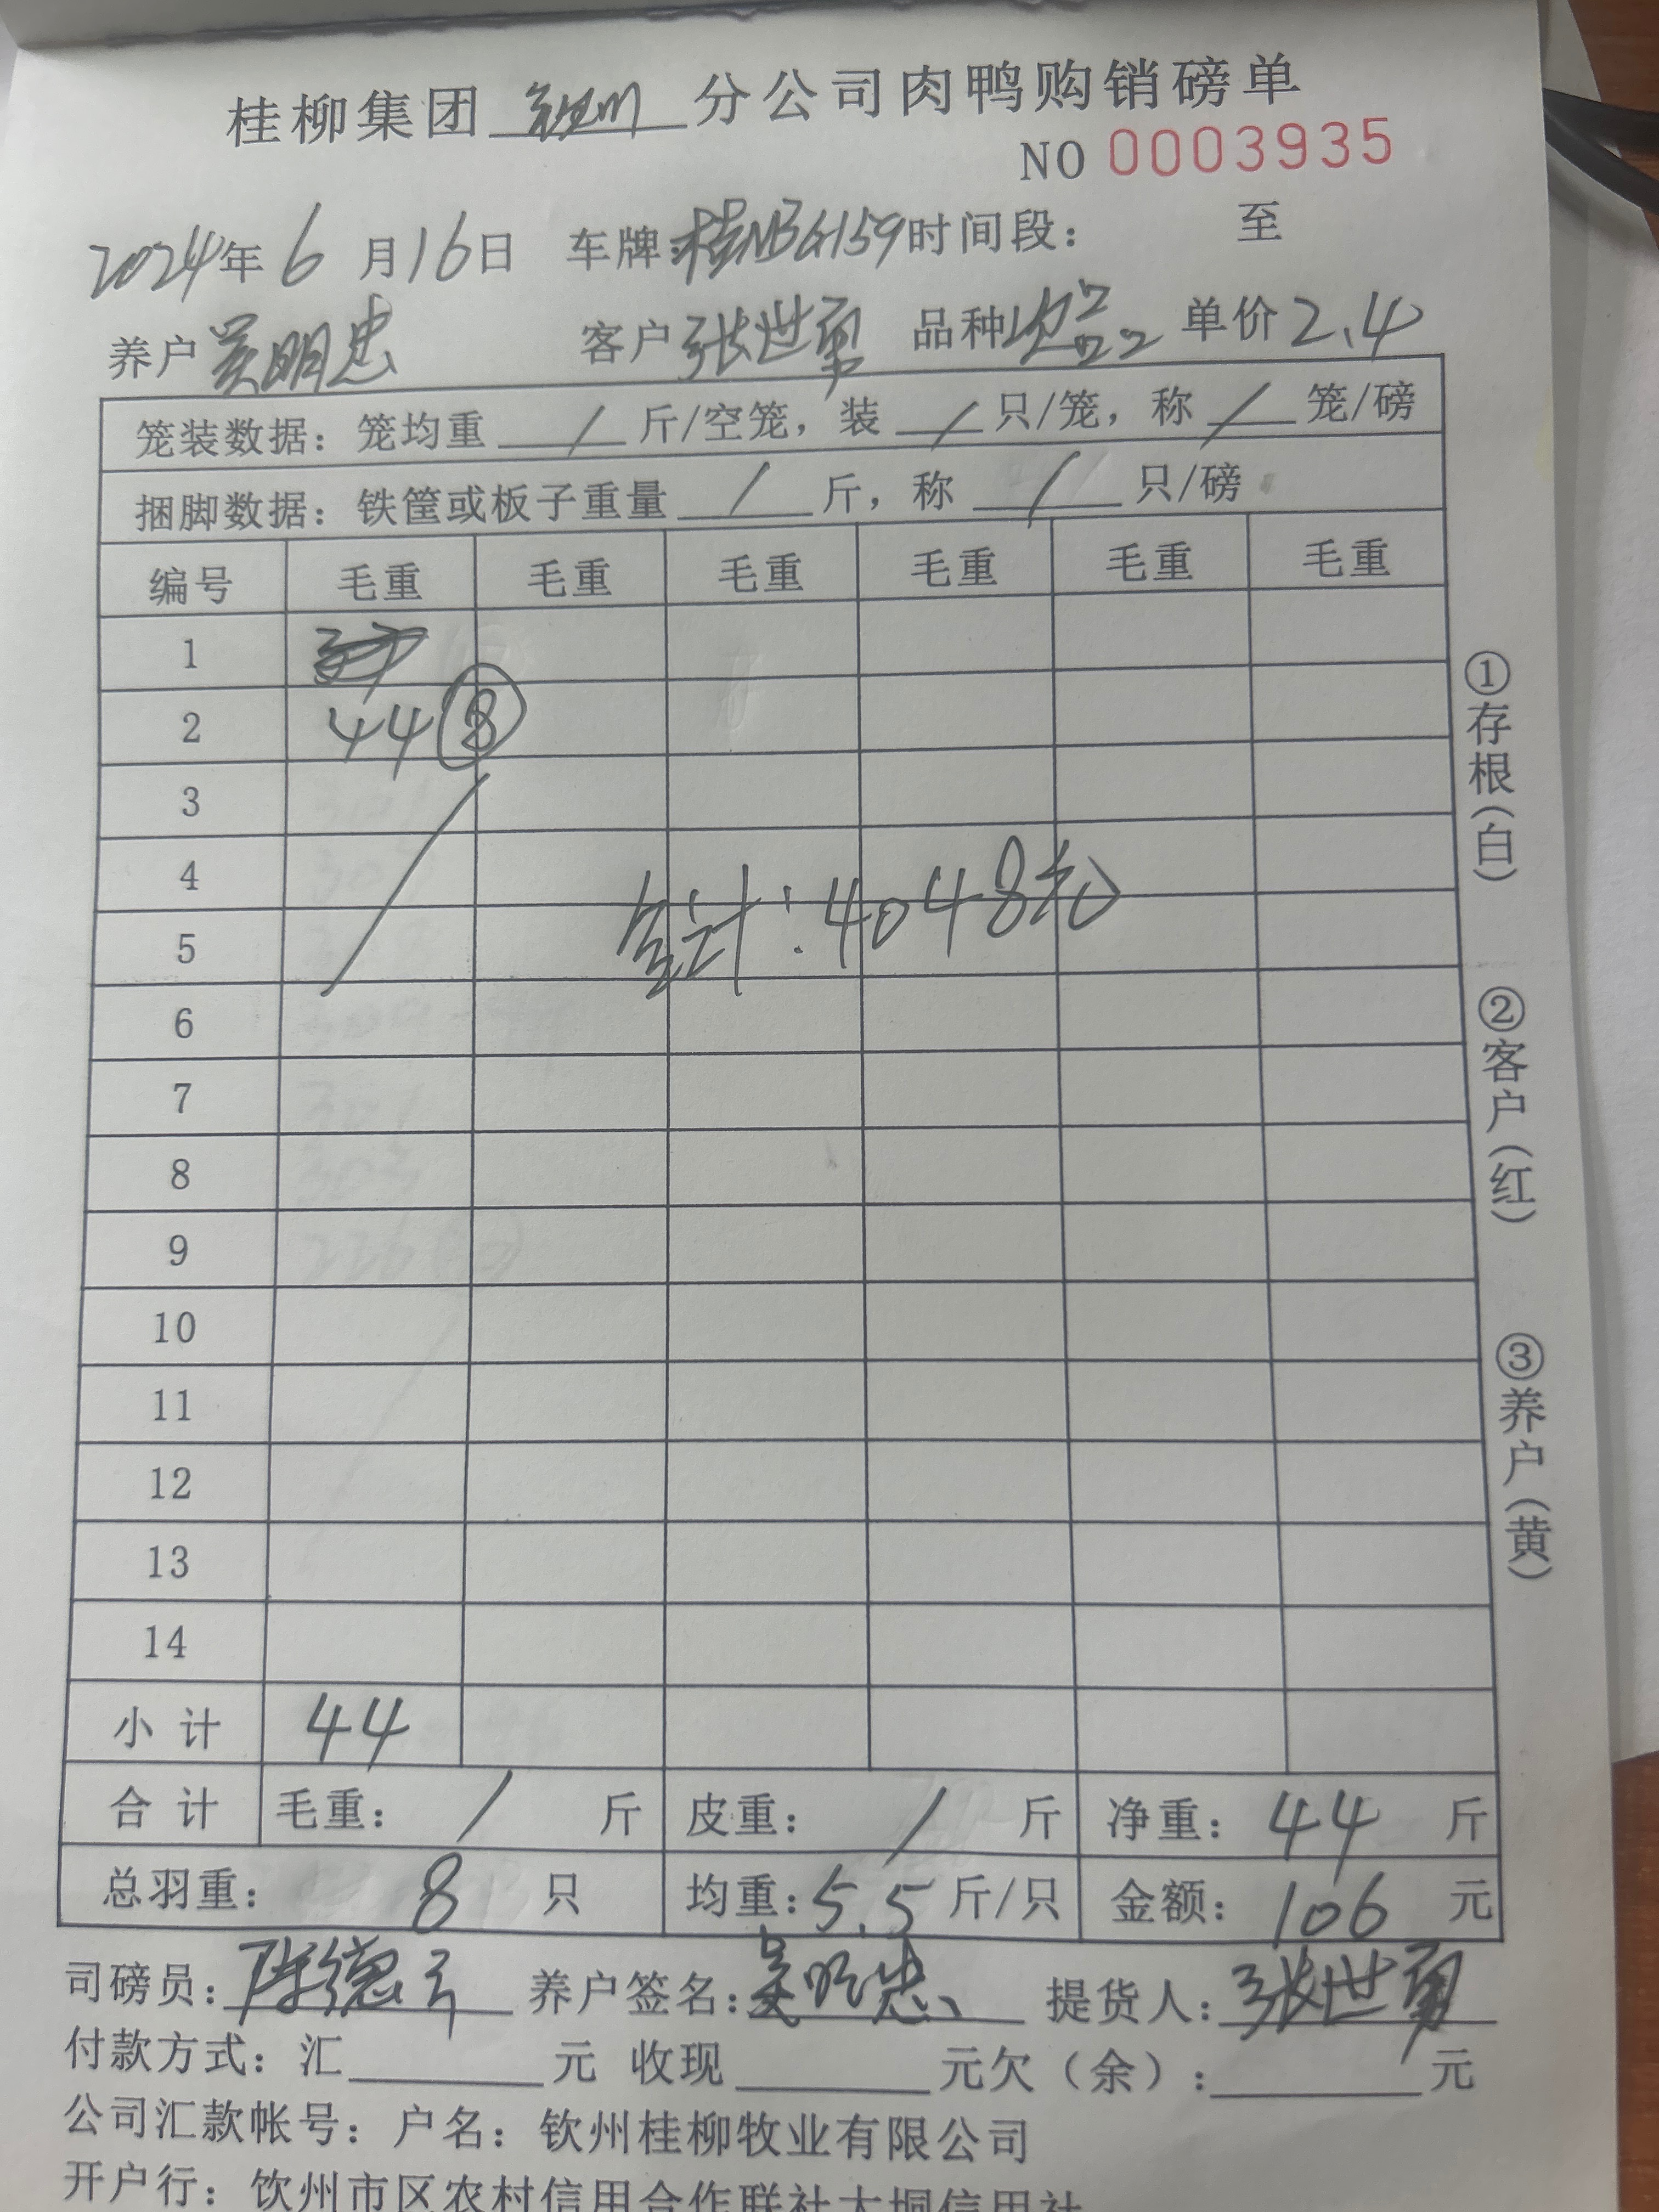 桂柳集团 钦州 分公司肉鸭购销磅单
NO 0003935
2024年 6 月16日 车牌:桂NBG159 时间段: 至
养户 吴明忠 客户 张世勇 品种 次品 单价 2.4
笼装数据: 笼均重 / 斤/空笼, 装 / 只/笼, 称 / 笼/磅
捆脚数据: 铁筐或板子重量 / 斤, 称 / 只/磅
编号 毛重 毛重 毛重 毛重 毛重 毛重
1
2 44 8
3
4
5
合计:4048元
6
7
8
9
10
11
12
13
14
小 计 44
合 计 毛重: / 斤 皮重: / 斤 净重: 44 斤
总羽重: 8 只 均重: 5.5 斤/只 金额: 106 元
司磅员: 陈德 养户签名: 吴明忠 提货人: 张世勇
付款方式: 汇 元 收现 元欠(余): 元
公司汇款帐号: 户名: 钦州桂柳牧业有限公司
开户行: 钦州市区农村信用合作联社大垌信用社
①存根(白)
②客户(红)
③养户(黄)